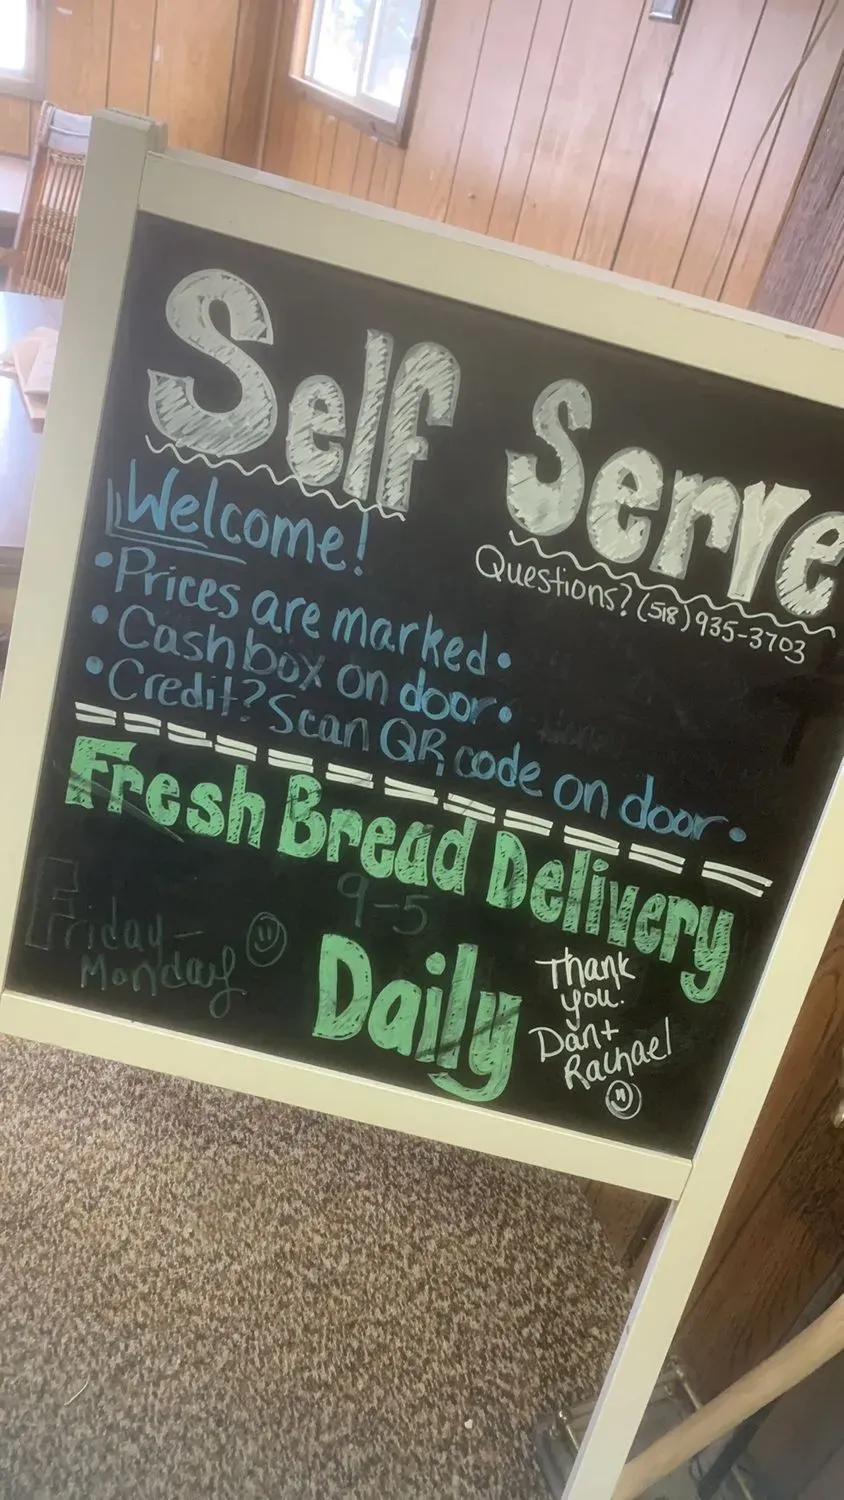 Self Serve
Questions? (518) 935-3703
Welcome!
• Prices are marked •
• Cash box on door •
• Credit? Scan QR code on door •
Fresh Bread Delivery
9-5
Daily
Friday -
Monday
Thank
you.
Dan +
Rachael